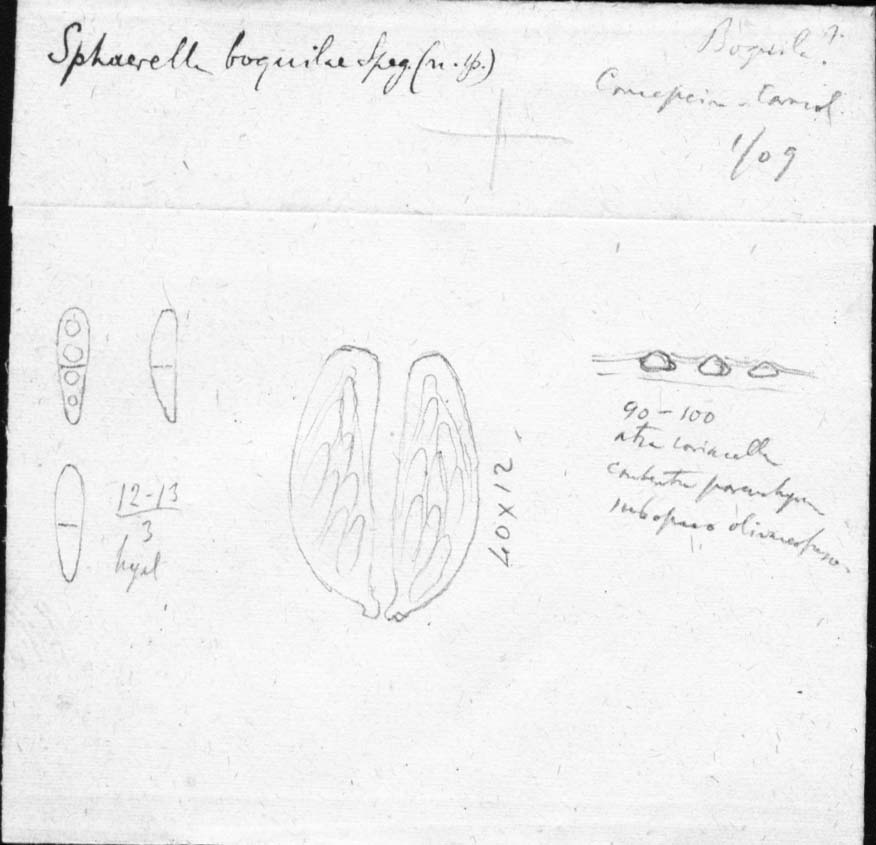 Sphaerella boquilae Speg. (n. sp.)
Boquila?
Concepcion
1/09
12-13
3
hyal
40x12
90-100
atra coriacella
contextu parenchym
subopaco olivaceofusco